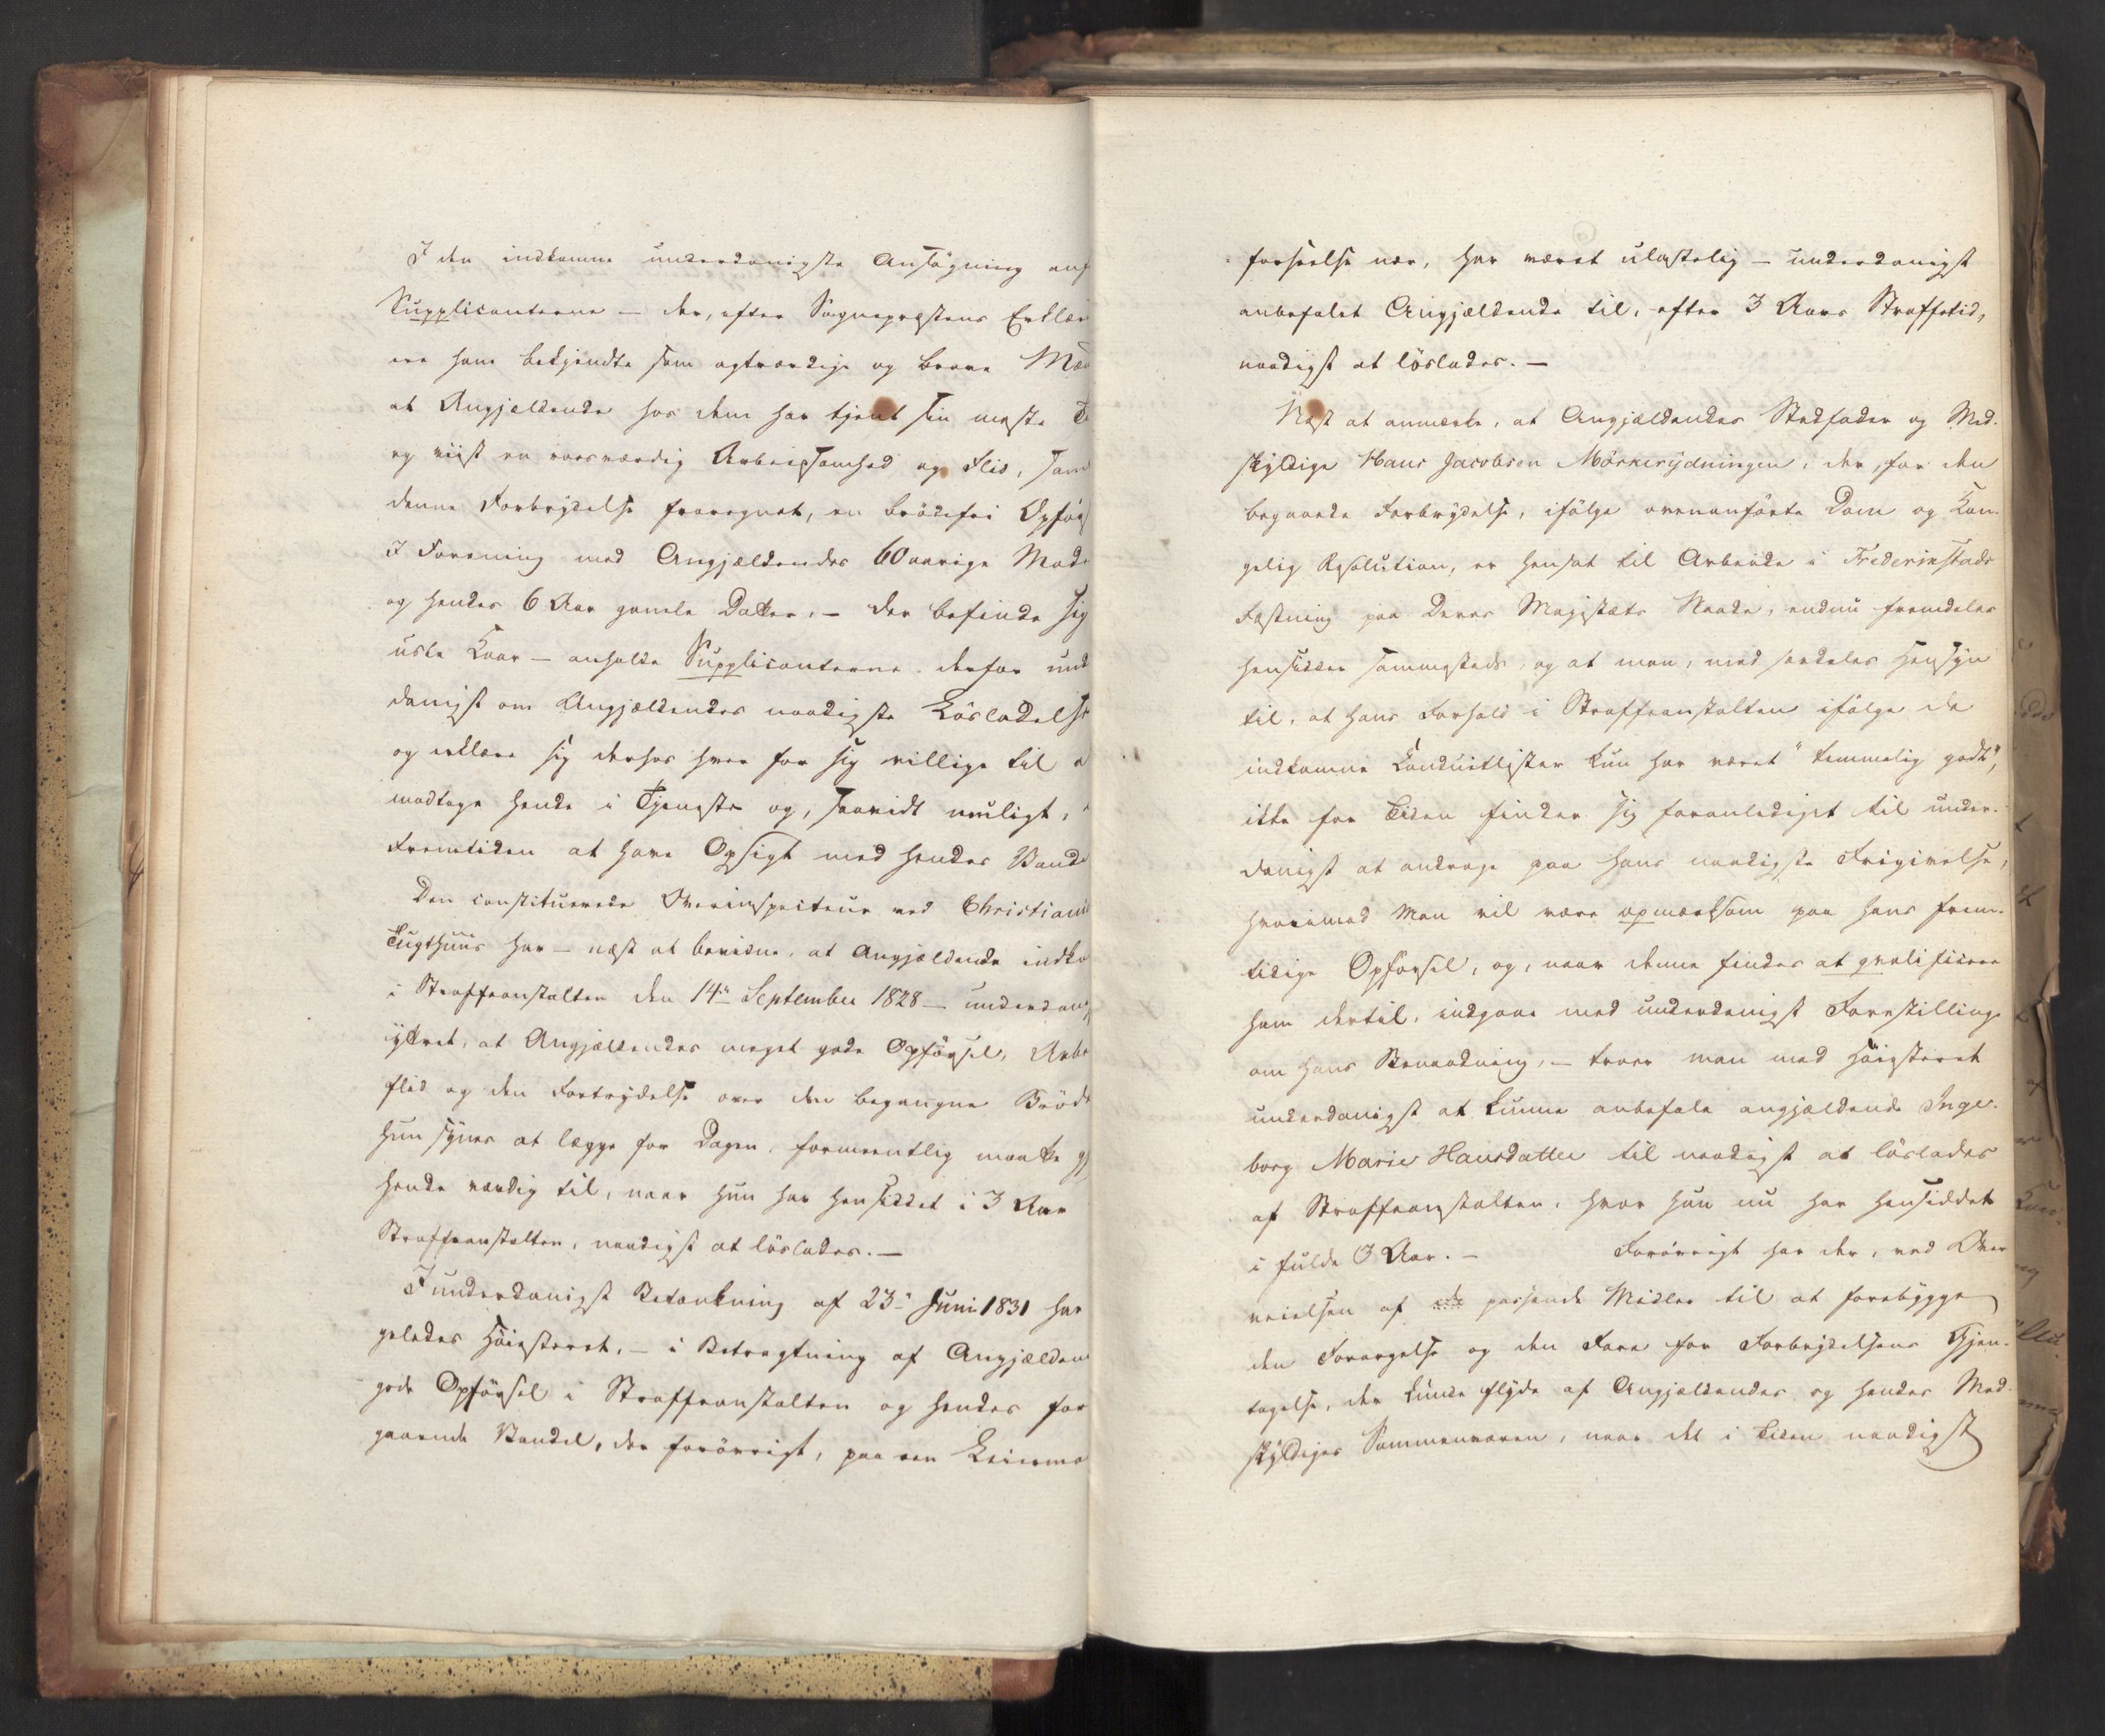 I den indkomne underdanigste Ansøgning anf
Supplicanterne – der, efter Sognepræstens Erklær
ere ham bekjendte som agtværdige og brave Mæn
at Angjældende hos dem har tjent sin meste T
og viist en roesværdig Arbeidsomhed og Flid, sam
denne Forbrydelse fraregnet, en brødefri Opførs
I Forening med Angjældendes 60aarige Mode
og hendes 6 Aar gamle Datter, – der befinde sig
usle Kaar – anholde Supplicanterne derfor und
danigst om Angjældendes naadigste Løsladelse
og erklære sig derhos hver for sig villige til a
modtage hende i Tjeneste og, saavidt muligt, i
Fremtiden at have Opsigt med hendes Vande
Den constituerede Overinspecteur ved Christiania
Tugthuus har – næst at bevidne, at Angjældende indko
i Straffeanstalten den 14de September 1828 – underdan
yttret, at Angjældendes meget gode Opførsel, Arbe
flid og den Fortrydelse over den begangne Brøde
hun synes at lægge for Dagen, formeentlig maatte gj
hende værdig til, naar hun har hensiddet i 3 Aar
Straffeanstalten, naadigst at løslades. –
I underdanigst Betænkning af 23de Juni 1831 har
geledes Høiesteret, – i Betragtning af Angjælden
gode Opførsel i Straffeanstalten og hendes for
gaaende Vandel, der forøvrigt, paa een Leiermo
forseelse nær, har været ulastelig – underdanigst
anbefalet Angjældende til, efter 3 Aars Straffetid,
naadigst at løslades. –
Næst at anmærke, at Angjældendes Stedfader og Med-
skyldige Hans Jacobsen Mörkerydningen, der, for den
begaaede Forbrydelse, ifølge ovenanførte Dom og Kon-
gelig Resolution, er hensat til Arbeide i Frederikstads
Fæstning paa Deres Majestæts Naade, endnu fremdeles
hensidder sammesteds, og at man, med særdeles Hensyn
til, at hans Forhold i Straffeanstalten ifølge de
indkomne Conduitlister kun har været "temmelig godt",
ikke for Tiden finder sig foranlediget til under-
danigst at andrage paa hans naadigste Frigivelse,
hvorimod Man vil være opmærksom paa hans frem-
tidige Opførsel, og, naar denne findes at qvalificere
ham dertil, indgaae med underdanigst Forestilling
om hans Benaadning, – troer man med Høiesteret
underdanigst at kunne anbefale angjældende Inge-
borg Marie Hansdatter til naadigst at løslades
af Straffeanstalten, hvor hun nu har hensiddet
i fulde 3 Aar. – Forøvrigt har der, ved Over
veielsen af passende Midler til at forebygge
den Forargelse og den Fare for Forbrydelsens Gjen-
tagelse, der kunde flyde af Angjældendes og hendes Med-
skyldiges Sammenværen, naar det i Tiden naadigst